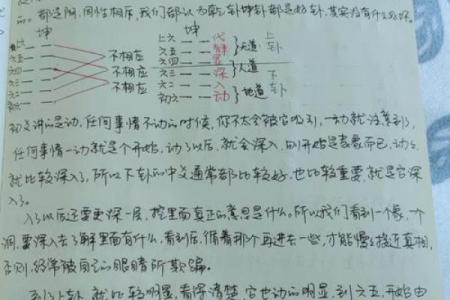 都是阴,同性相斥,我们都认为乾卦坤卦都是好卦,其实没有什么好
坤 坤
上六 上六 代
六五 不相应 六五 解 上卦
六四 不相应 六四 人道
六三 不相应 六三 深 下卦
六二 六二 入 地道
初六 初六 动
初爻讲的是动,任何事情不动的时候,你不太会被它吸引,一动就
任何事情一动就是个开始,动了以后,就会深入,刚开始是表象而已,动
就比较深入了,所以下卦的中爻通常都比较好,也比较重要,就是它深
入了。
入了以后还要更深一层,挖里面真正的意思是什么。所以我们看到一个象,一个
洞,要深入去了解里面有什么,看到后,循着那个再进去一些,才能慢慢接近真相,
否则,经常被自己的眼睛所欺骗。
到了上卦,就比较明显,看得清楚,它也动的明显,到六五开始